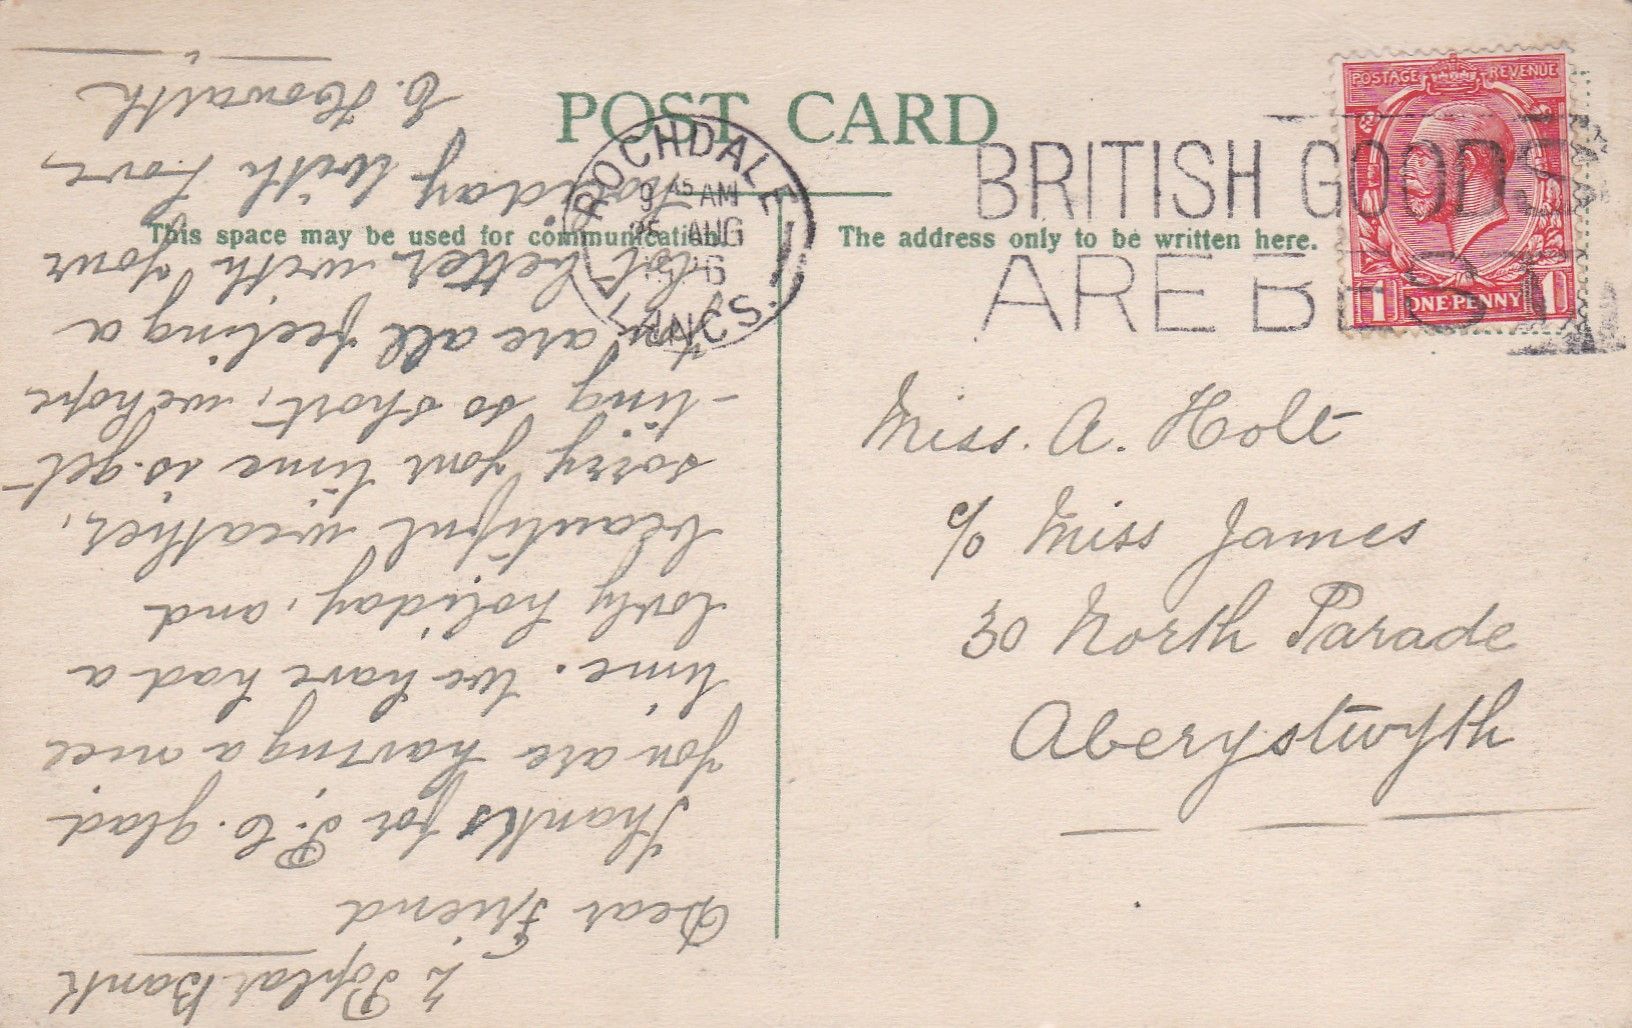 POST CARD
This space may be used for communication.
The address only to be written here.
POSTAGE REVENUE
1 ONE PENNY 1
ROCHDALE
9 45 AM
AUG
LANCS.
BRITISH GOODS
ARE BEST
Miss. A. Holt
c/o Miss James
30 North Parade
Aberystwyth
2 Poplar Bank
Dear Friend
Thanks for P.C. glad
you are having a nice
time. We have had a
lovly holiday, and
beautiful weather,
sorry your time is get-
-ting so short, we hope
you are all feeling a
lot better with your
holiday with Love,
E. Howarth